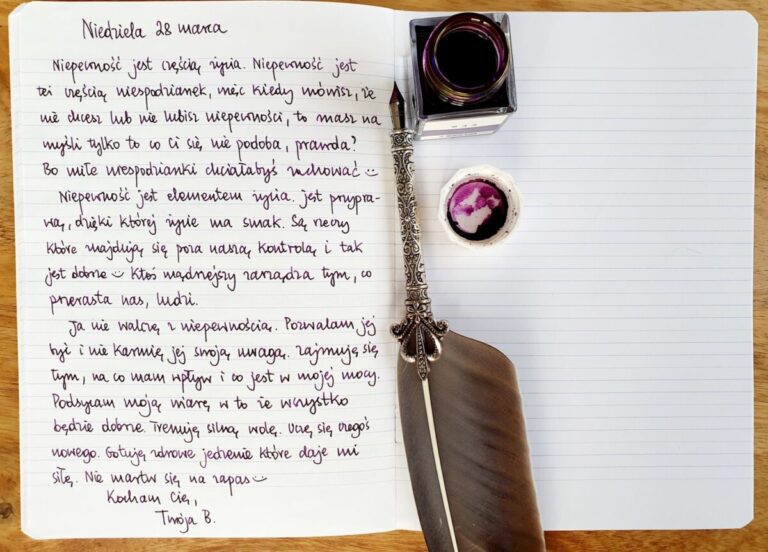 Niedziela 28 marca
Niepewność jest częścią życia. Niepewność jest
też częścią niespodzianek, więc kiedy mówisz, że
nie chcesz lub nie lubisz niepewności, to masz na
myśli tylko to co Ci się nie podoba, prawda?
Bo miłe niespodzianki chciałabyś zachować ☺
Niepewność jest elementem życia. jest przypra-
wą, dzięki której życie ma smak. Są rzeczy
które znajdują się poza naszą kontrolą i tak
jest dobrze ☺ Ktoś mądrzejszy zarządza tym, co
przerasta nas, ludzi.
Ja nie walczę z niepewnością. Pozwalam jej
być i nie karmię jej swoją uwagą. Zajmuję się
tym, na co mam wpływ i co jest w mojej mocy.
Podsycam moją wiarę w to że wszystko
będzie dobrze. Trenuję silną wolę. Uczę się czegoś
nowego. Gotuję zdrowe jedzenie które daje mi
siłę. Nie martw się na zapas ☺
Kocham Cię,
Twoja B.